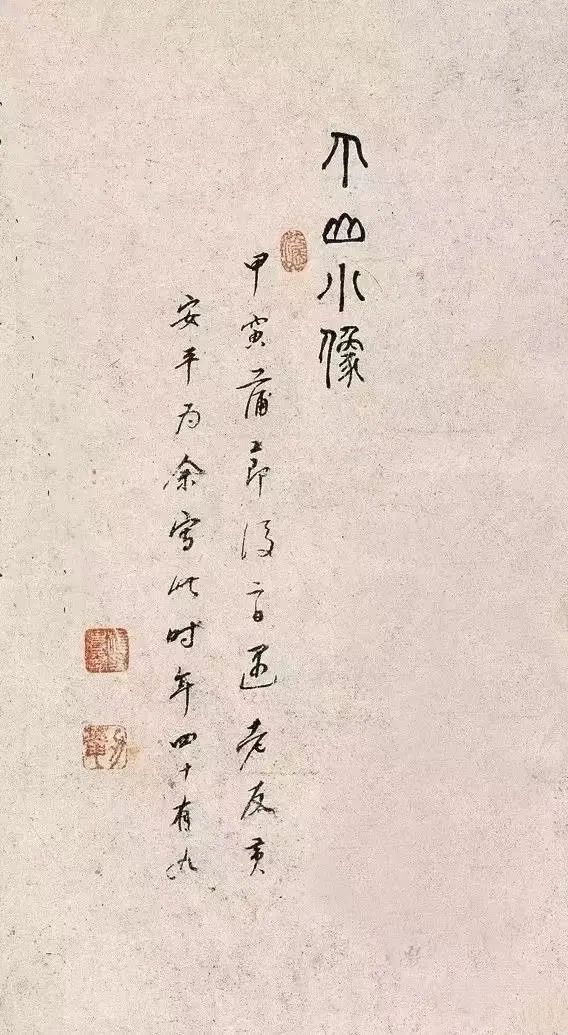 个山小像
甲寅蒲節後二日遇老友黃
安平為余寫此時年四十有九